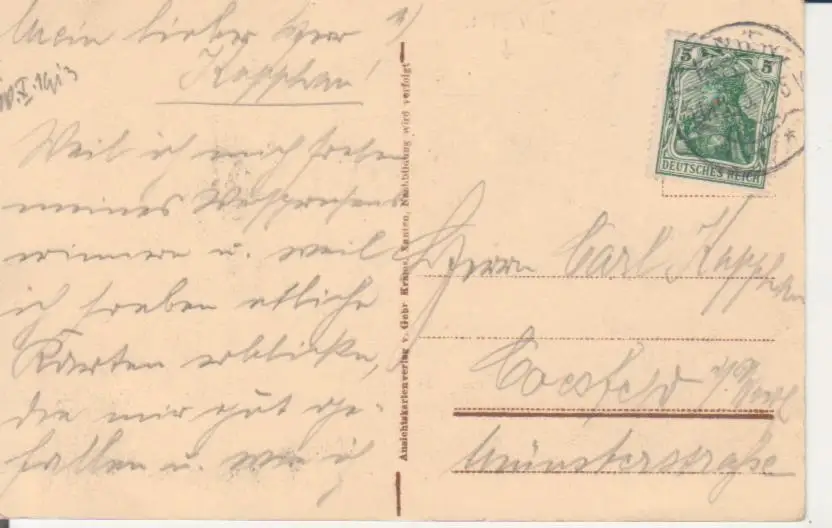 Mein lieber Herr
Kopphan!
10.X.1913
Weil ich mich soeben
meines Versprechens
erinnere u. weil
ich soeben etliche
Karten erblicke,
die mir gut ge-
fallen u. wie ich
1)
Ansichtskartenverlag v. Gebr. Krams, Xanten, Nachbildung wird verfolgt
5 5
DEUTSCHES REICH
Herrn Carl Kopphan
Coesfeld i/Westf
Münsterstraße